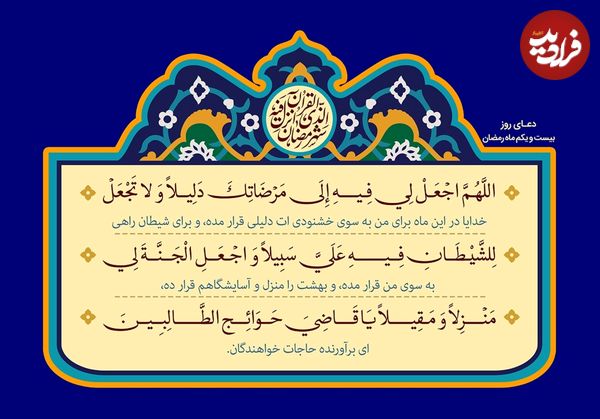 فرادید
دعـای روز
بیست و یکم ماه رمضان
شهر رمضان الذی انزل فیه القرآن
اللَّهُمَّ اجْعَلْ لِي فِيهِ إِلَى مَرْضَاتِكَ دَلِيلاً وَ لا تَجْعَلْ
خدایا در این ماه برای من به سوی خشنودی ات دلیلی قرار مده، و برای شیطان راهی
لِلشَّيْطَانِ فِيهِ عَلَيَّ سَبِيلاً وَ اجْعَلِ الْجَنَّةَ لِي
به سوی من قرار مده، و بهشت را منزل و آسایشگاهم قرار ده،
مَنْزِلاً وَ مَقِيلاً يَا قَاضِيَ حَوَائِجِ الطَّالِبِينَ
ای برآورنده حاجات خواهندگان.